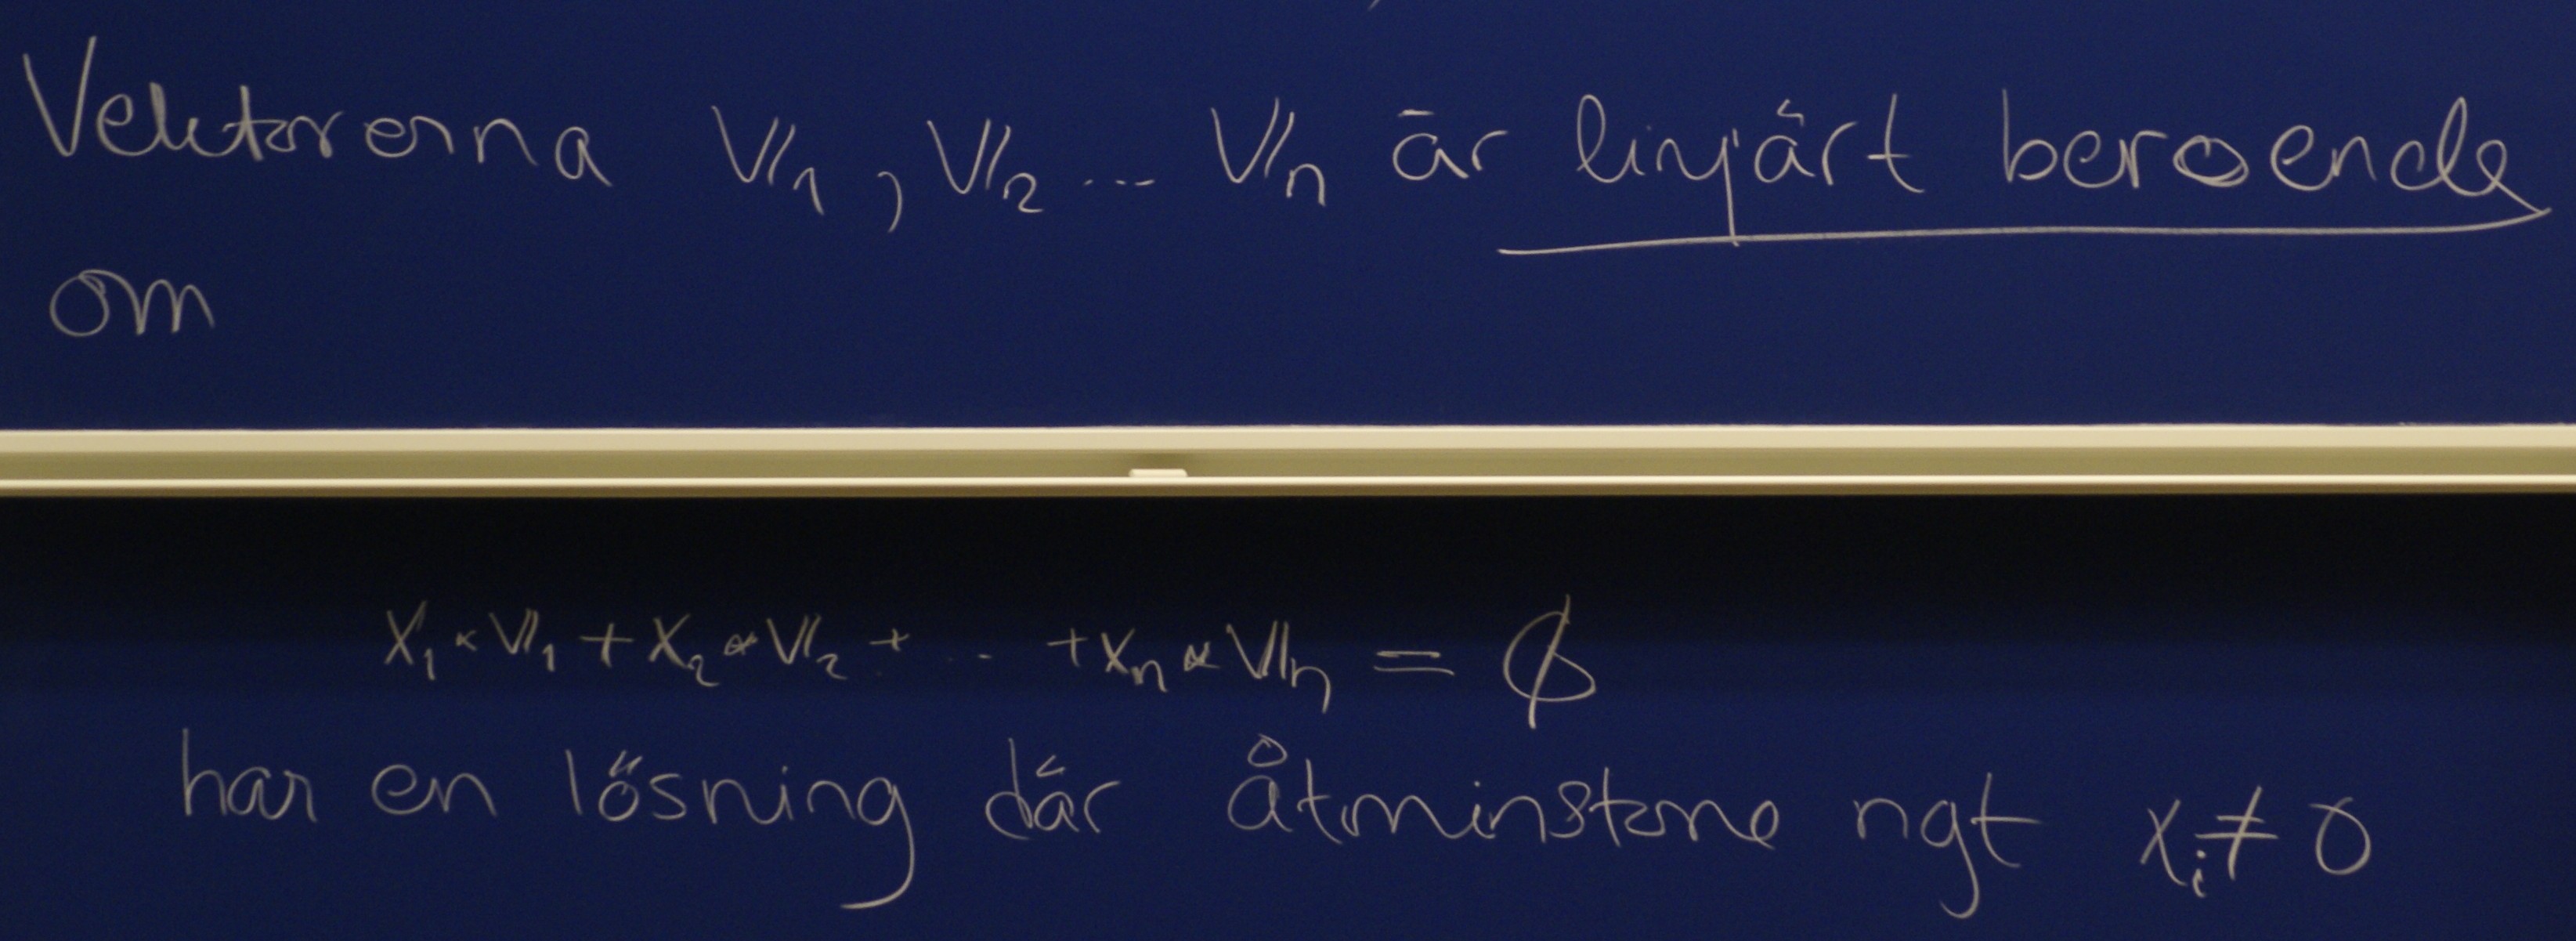 Vektorerna V₁, V₂ ... Vₙ är linjärt beroende
om
x₁ * V₁ + x₂ * V₂ + .. + xₙ * Vₙ = 0
har en lösning där åtminstone ngt xᵢ ≠ 0